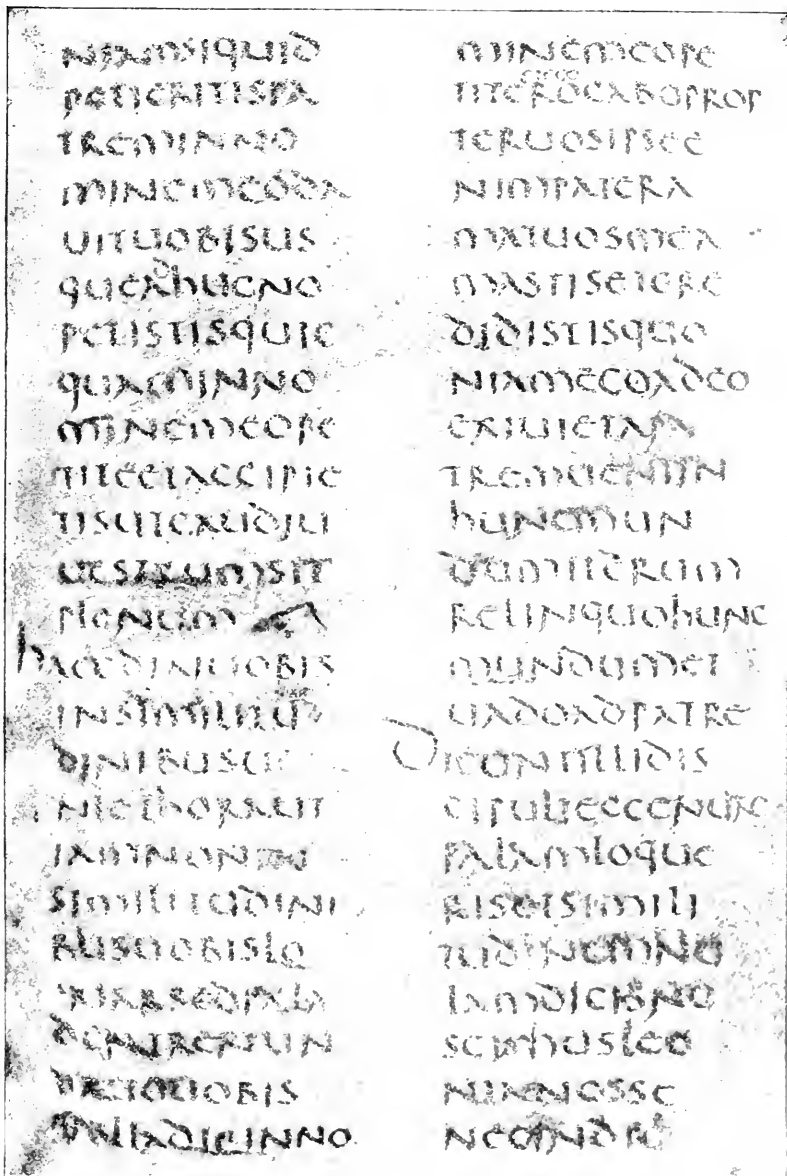 NIAMSIQUID
PETIERITISPA
TREMINNO
MINEMEODA
UITUOBISUS
QUEADhUCNO
PETISTISQUIC
QUAMINNO
MINEMEOPE
TITEETACCIPIE
TISUTGAUDIU
UESTRUMSIT
PLENUM
hAECDIXIUOBIS
INSIMILITU
DINIBUSUE
NIEThORAUT
IAMNON
SIMILITUDINI
BUSUOBISLO
UOBIS
ILLADIEINNO
MINEMEOPE
TITEROGABOPROP
TERUOSIPSEE
NIMPATERA
MATUOSMEA
MASTISETCRE
DIDISTISQUO
NIAMEGOADEO
EXIUIETAPA
TREMUENIIN
hUNCMUN
DUMITERUM
RELINQUOhUNC
MUNDUMET
UADOADPATRE
DICONTILLIDIS
CIPULIECCENUNC
PALAMLOQUE
RISETSIMILI
TUDINEMNO
LAMDICISNO